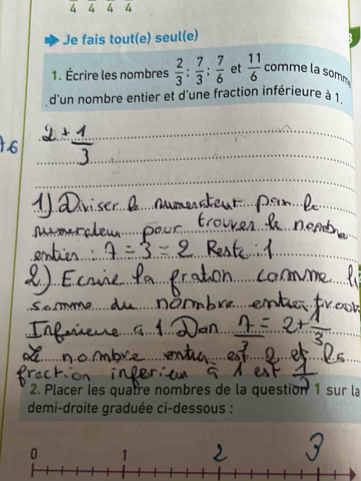 4 4 4 4
Je fais tout(e) seul(e)
1. Écrire les nombres 2/3 ; 7/3 ; 7/6 et 11/6 comme la somm
d'un nombre entier et d'une fraction inférieure à 1.
2 + 1/3
1) Diviser le numerateur par le
numerateur pour trouver le nombre
entier : 7 ÷ 3 = 2 Reste : 1
2) Ecrire la fration comme la
somme du nombre entier
Inferieure a 1. Don 7/3 = 2 + 1/3
Le nombre entier est 2 et la
fraction inferieur à 1 est 1/3
2. Placer les quatre nombres de la question 1 sur la
demi-droite graduée ci-dessous :
0 1 2 3